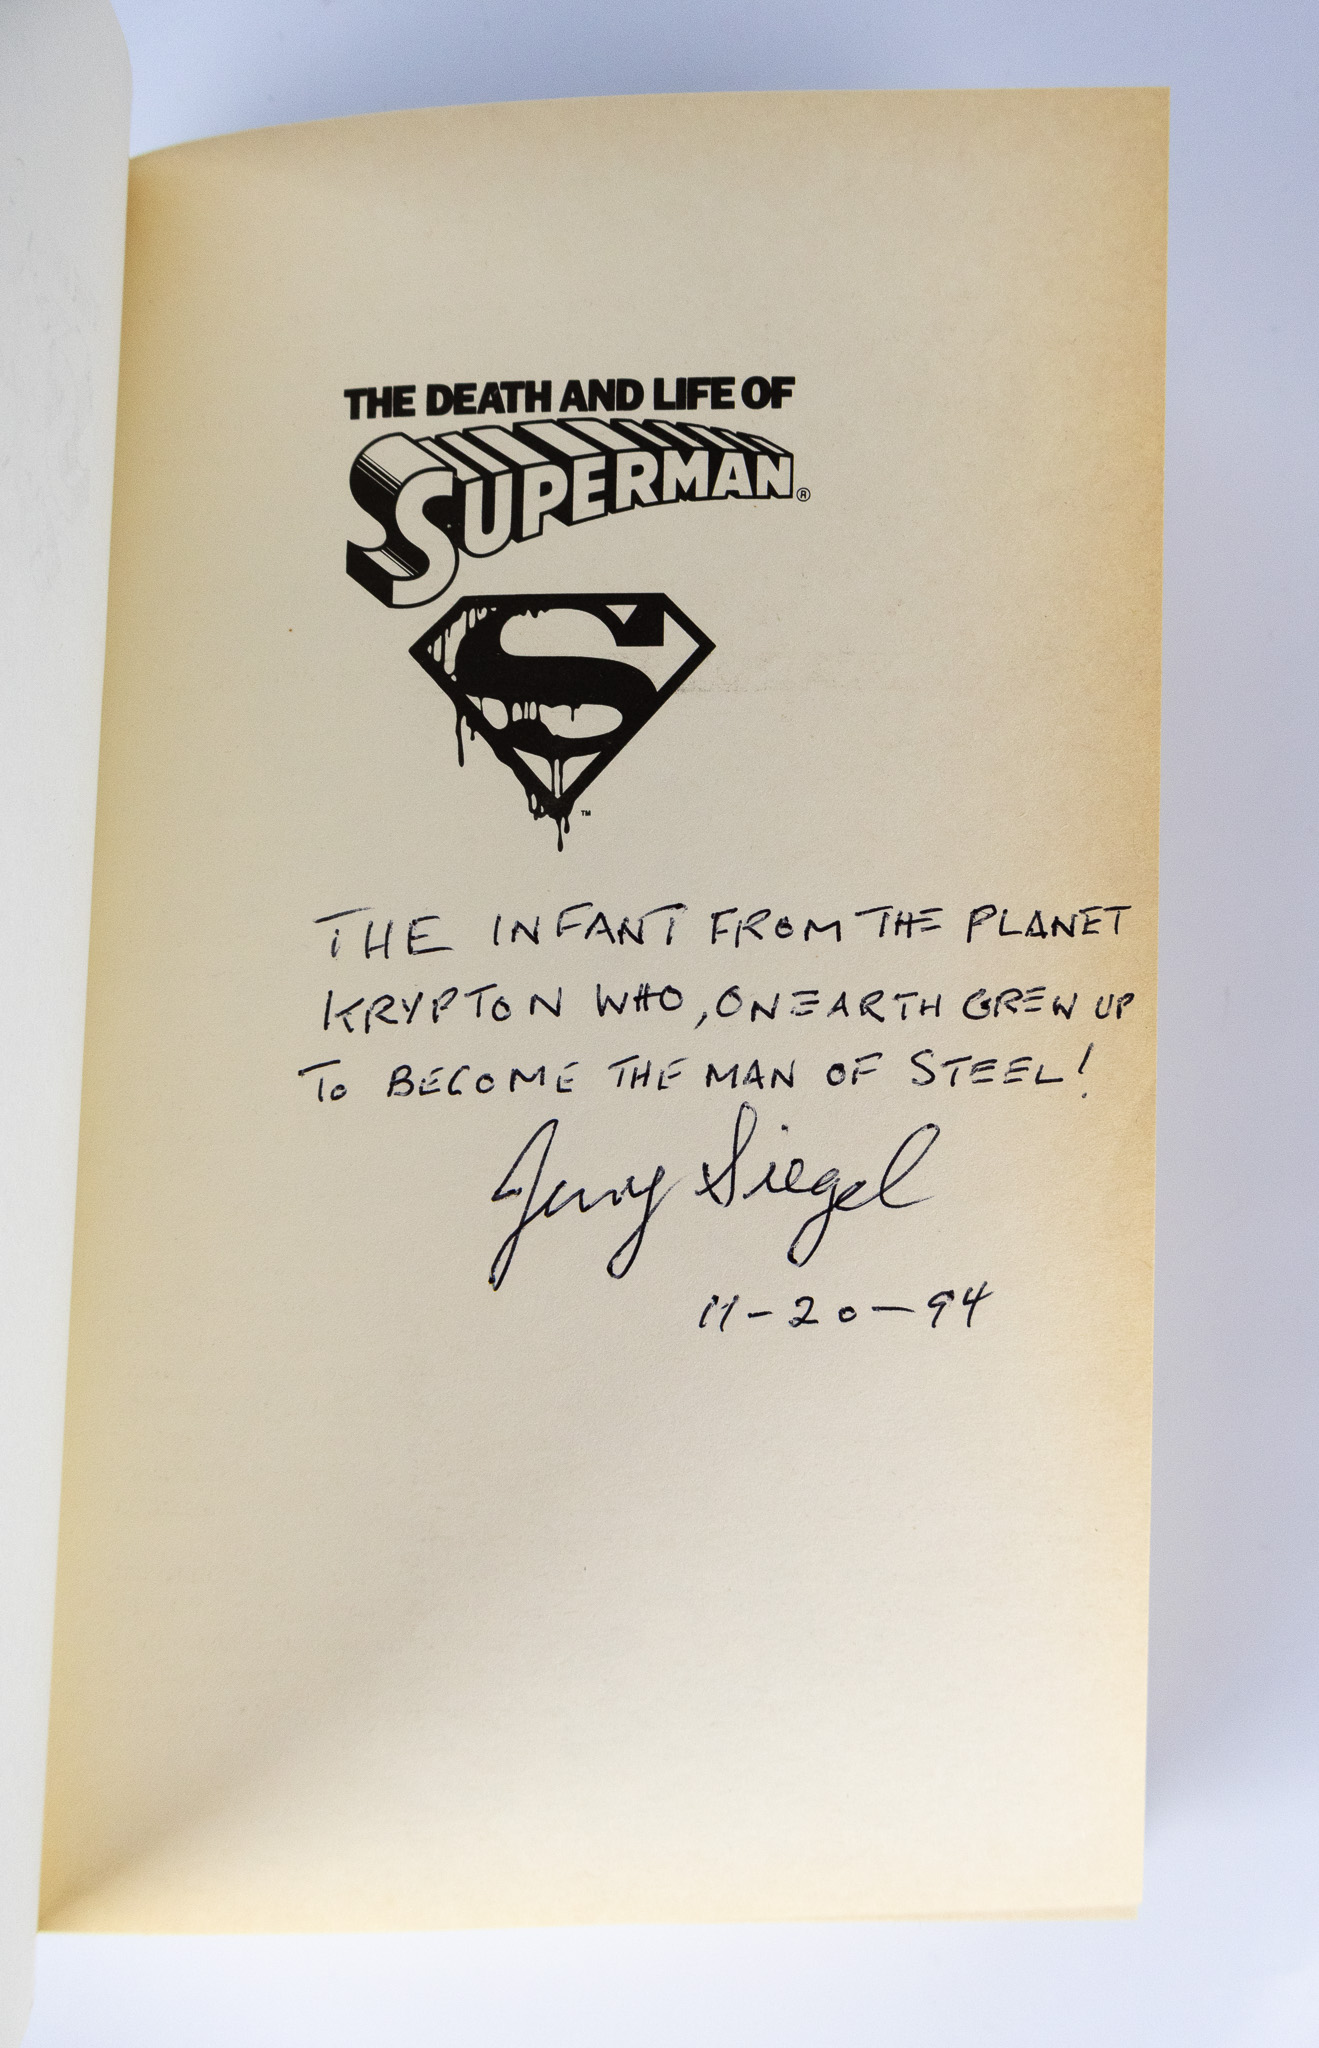 THE DEATH AND LIFE OF
SUPERMAN®
S
™
THE INFANT FROM THE PLANET
KRYPTON WHO, ON EARTH GREW UP
TO BECOME THE MAN OF STEEL!
Jerry Siegel
11-20-94